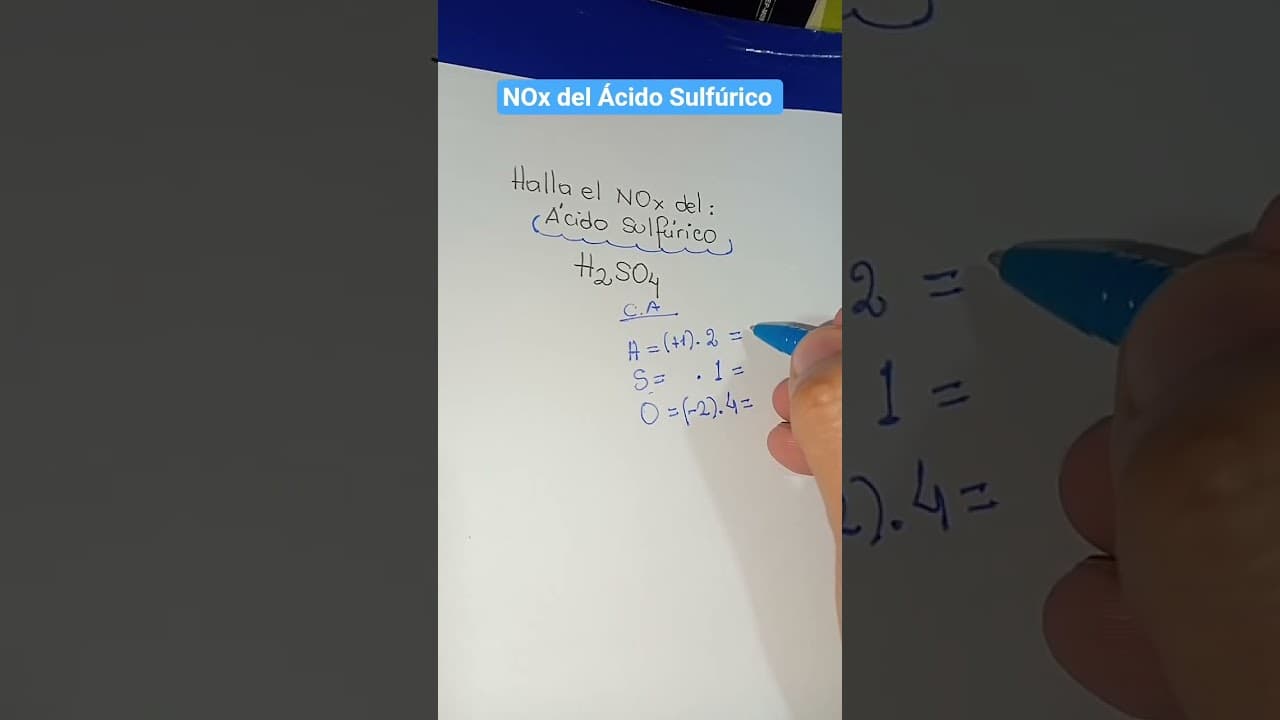 NOx del Ácido Sulfúrico
Halla el NOx del:
Ácido Sulfúrico
H₂SO₄
C.A
H = (+1). 2 =
S = . 1 =
O = (-2). 4 =
2 =
1 =
2). 4 =